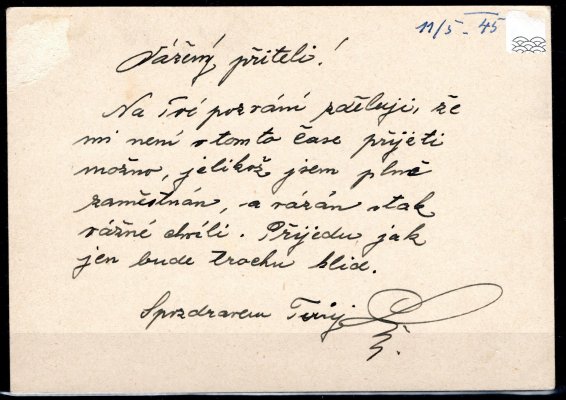 11/5 - 45
Vážený příteli!
Na Tvé pozvání zděluji, že
mi není v tomto čase přijeti
možno, jelikož jsem plně
zaměstnán, a vázán v tak
vážné chvíli. Přijedu jak
jen bude trochu klid.
S pozdravem Tvůj